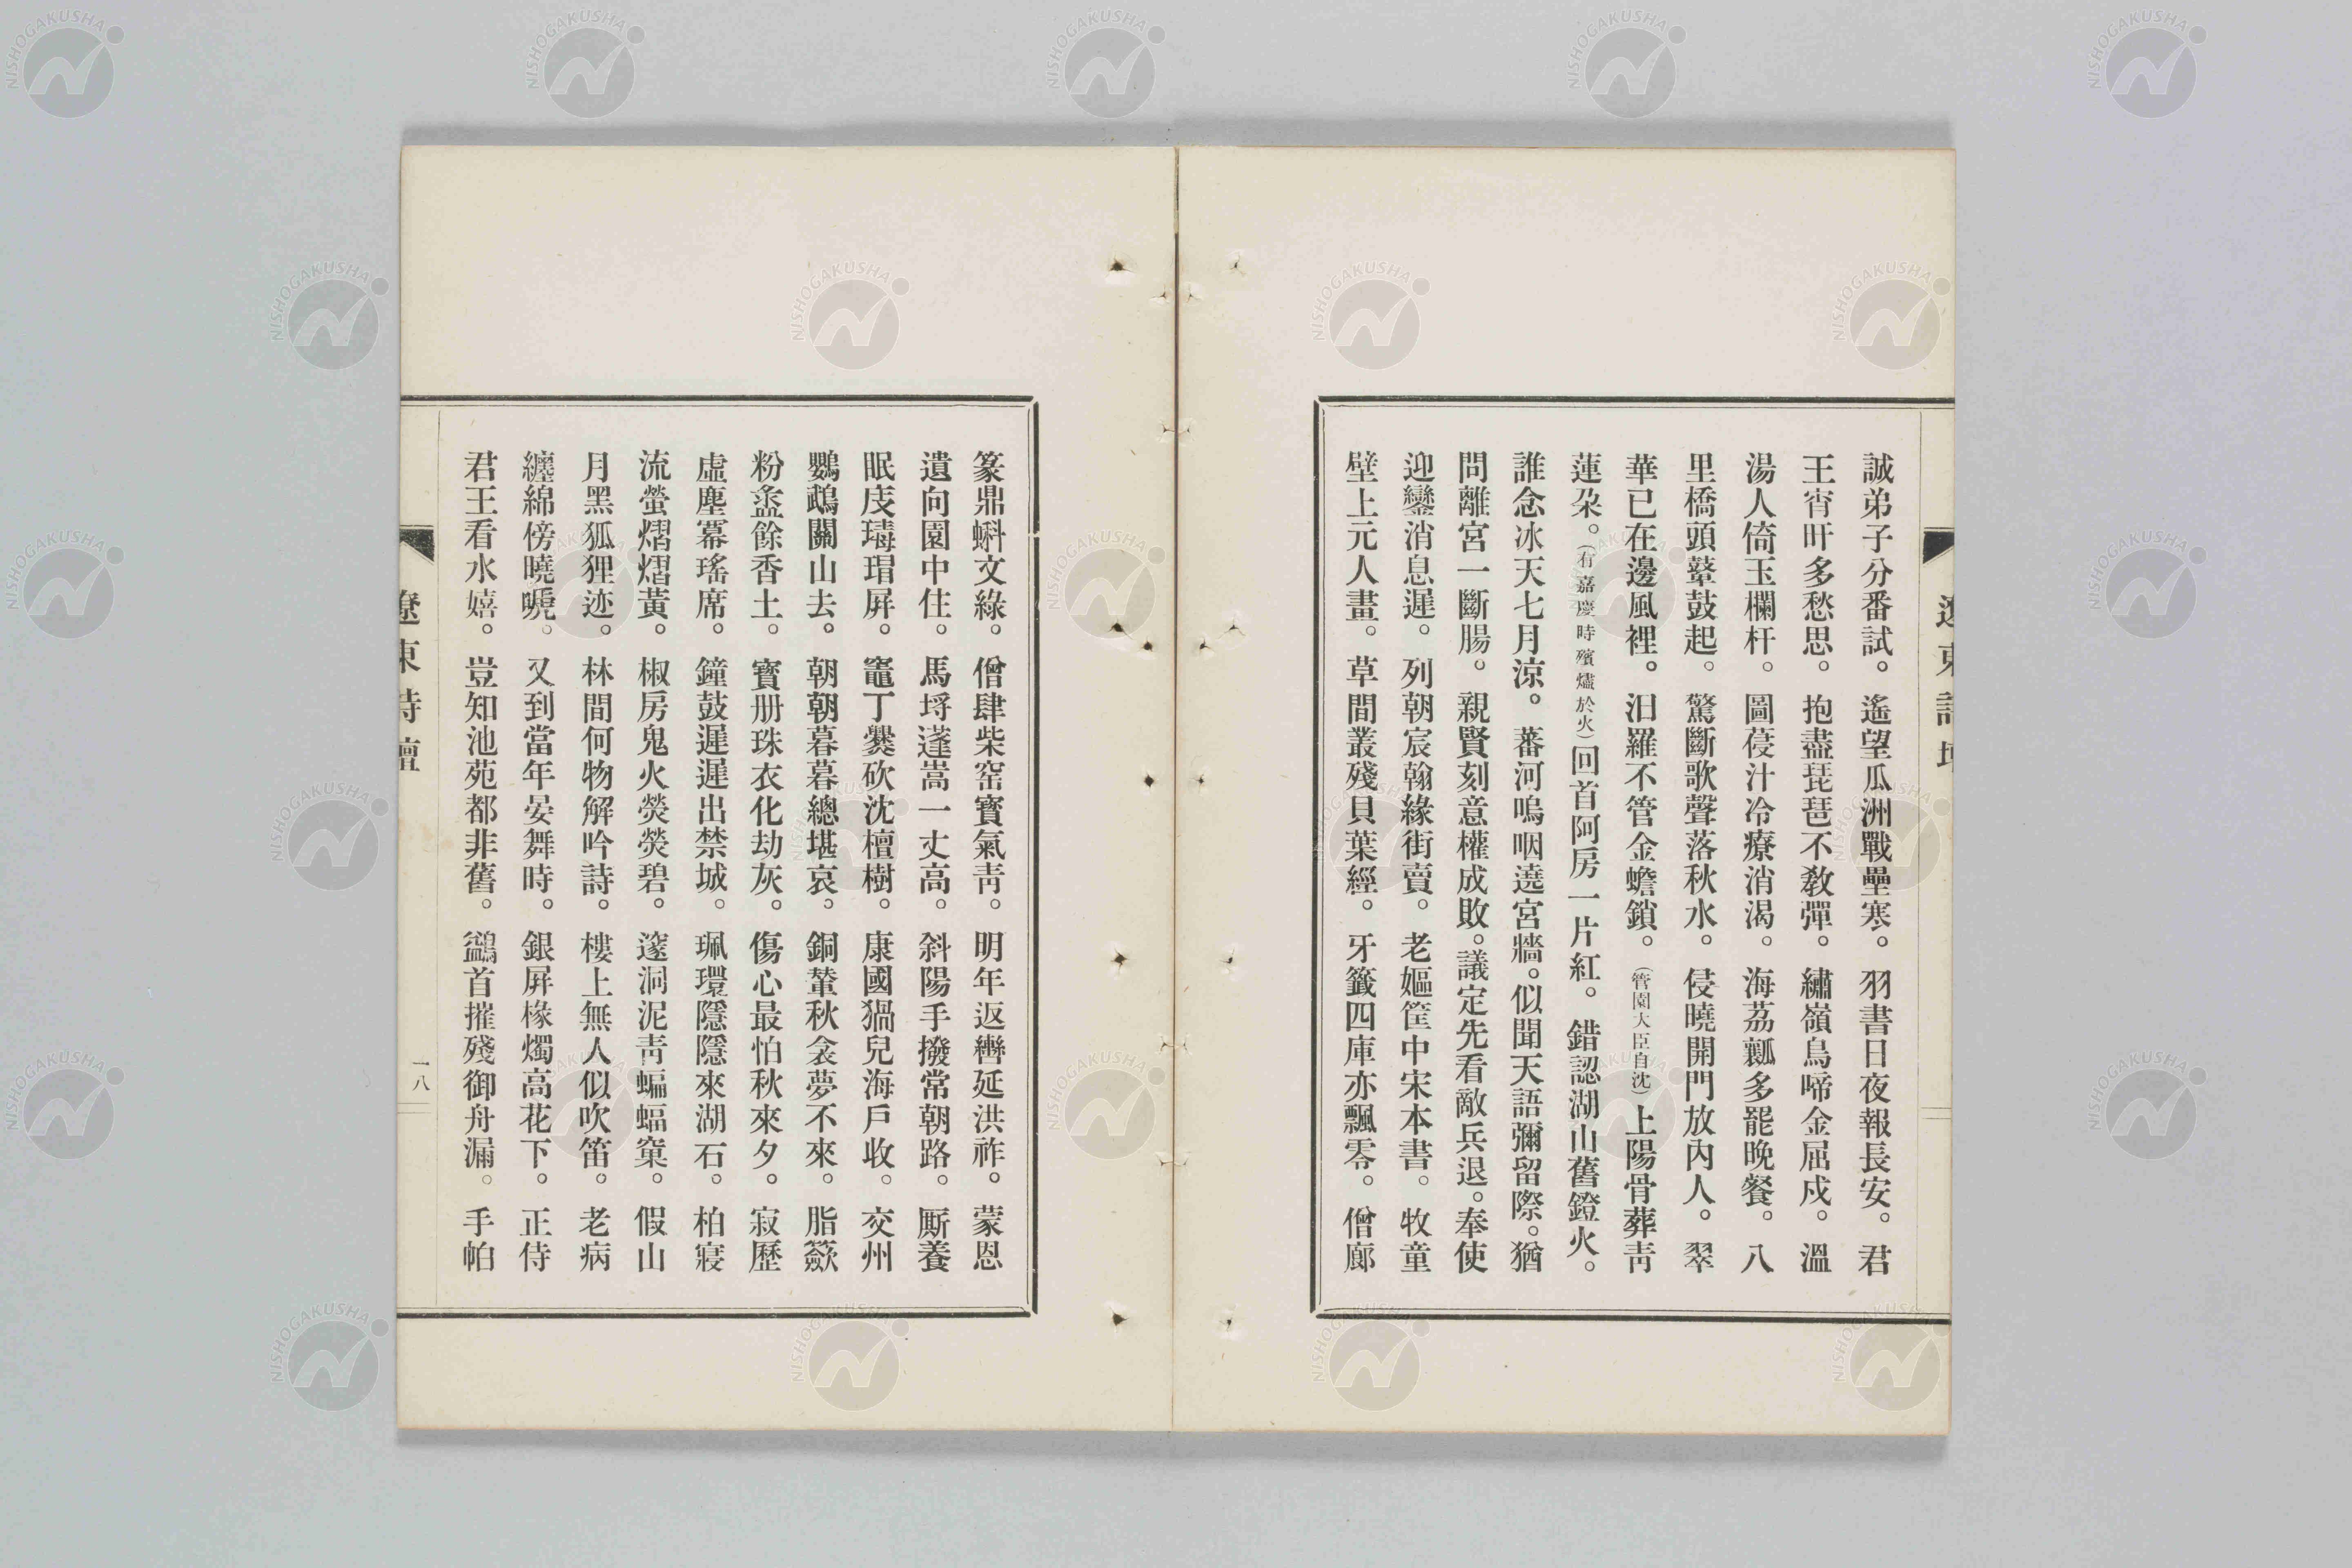 誠弟子分番試。遙望瓜洲戰壘寒。羽書日夜報長安。君
王宵旰多愁思。抱盡琵琶不敎彈。繡嶺鳥啼金屈戍。溫
湯人倚玉欄杆。圖葠汁冷療消渴。海荔瓤多罷晚餐。八
里橋頭鼙鼓起。驚斷歌聲落秋水。侵曉開門放內人。翠
華已在邊風裡。汨羅不管金蟾鎖。(管園大臣自沈)上陽骨葬靑
蓮朵。(有嘉慶時殯燼於火)回首阿房一片紅。錯認湖山舊鐙火。
誰念冰天七月涼。蕃河嗚咽遶宮牆。似聞天語彌留際。猶
問離宮一斷腸。親賢刻意權成敗。議定先看敵兵退。奉使
迎鑾消息遲。列朝宸翰緣街賣。老嫗筐中宋本書。牧童
壁上元人畫。草間叢殘貝葉經。牙籤四庫亦飄零。僧廊
遼東詩壇
篆鼎蝌文綠。僧肆柴窑寶氣靑。明年返轡延洪祚。蒙恩
遺向園中住。馬埒蓬嵩一丈高。斜陽手撥常朝路。厮養
眠庋瑇瑁屛。竈丁爨砍沈檀樹。康國猧兒海戶收。交州
鸚鵡關山去。朝朝暮暮總堪哀。銅輦秋衾夢不來。脂籢
粉盝餘香土。寳册珠衣化劫灰。傷心最怕秋來夕。寂歷
虛塵冪瑤席。鐘鼓遲遲出禁城。珮環隱隱來湖石。柏寢
流螢熠熠黃。椒房鬼火熒熒碧。邃洞泥靑蝙蝠窠。假山
月黑狐狸迹。林間何物解吟詩。樓上無人似吹笛。老病
纏綿傍曉嗁。又到當年晏舞時。銀屛椽燭高花下。正侍
君王看水嬉。豈知池苑都非舊。鷁首摧殘御舟漏。手帕
遼東詩壇
一八
NISHOGAKUSHA